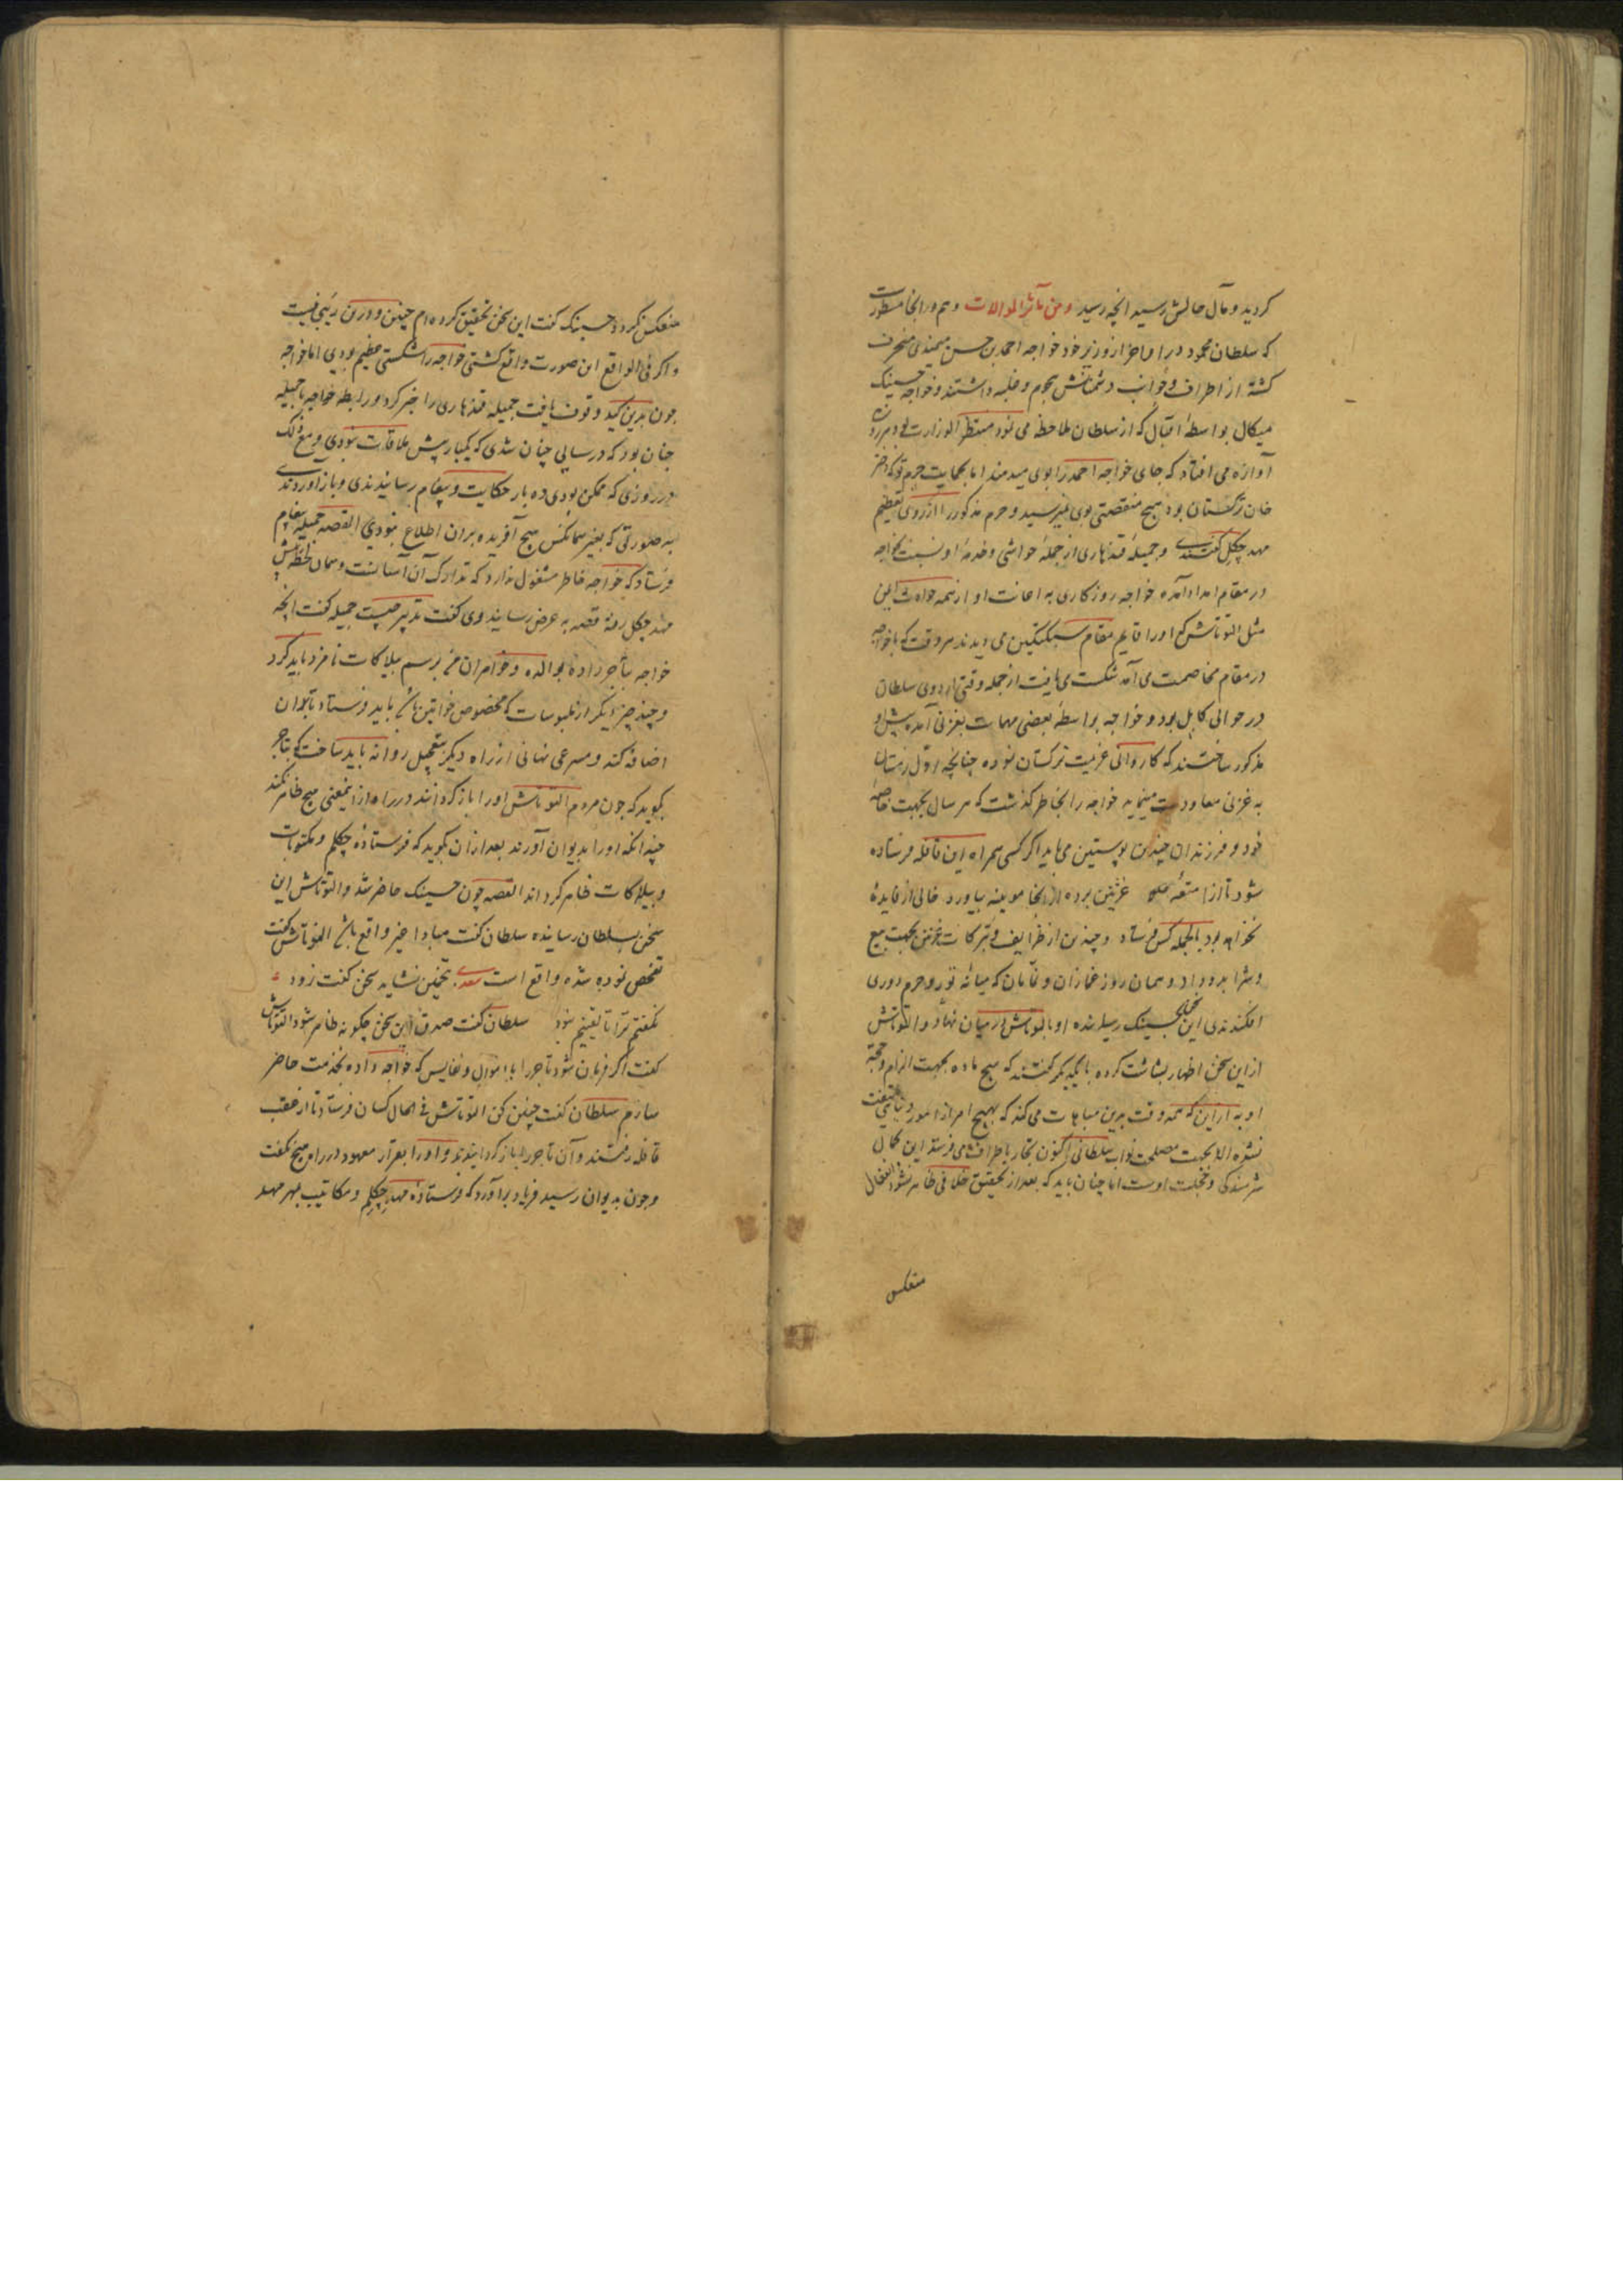 کردید و مآل حالش رسید انچه رسید و من مآثر الموالات و هم در انجا مسطورست
که سلطان محمود در اواخر از وزیر خود خواجه احمد بن حسن میمندی منحرف
کشته از اطراف و جوانب دشمنانش هجوم و غلبه داشتند و خواجه حسینک
میکال بواسطهٔ اقبالی که از سلطان ملاحظه می نمود منتظر الوزارت بود و هر روز
آوازه می افتاد که جای خواجه احمد را بوی میدهند اما بحمایت حرم تو که دختر
خان ترکستان بود هیچ منقصتی بوی نمیرسید و حرم مذکور را از روی تعظیم
مهد چکل کفتندی و جمیلهٔ قندهاری از جملهٔ حواشی و خدمهٔ او نسبت بخواجه
در مقام امداد آمده خواجه روزکاری به اعانت او از همه حوادث ایمن
مثل التونتاش که او را قایم مقام سبکتکین می دیدند هر وقت که با خواجه
در مقام مخاصمت می آمد شکست می یافت از جمله وقتی اردوی سلطان
در حوالی کابل بود و خواجه بواسطهٔ بعضی مهمات بغزنی آمده پیش او
مذکور ساختند که کاروانی عزیمت ترکستان نموده چنانچه اول زمستان
به غزنی معاودت مینماید خواجه را بخاطر کذشت که هر سال بجهت خاصهٔ
خود و فرزندان چندین پوستین می باید اکر کسی همراه این قافله فرستاده
شود تا از امتعهٔ غزنین برده از انجا موینه بیاورد خالی از فایدهٔ
نخواهد بود بالجمله کس فرستاد و چندین از ظرایف و تبرکات غزنین بجهت بیع
و شرا بدو داد و همان روز غمازان و نمامان که میانهٔ تو و حرم دوری
افکندندی این بحسینک رسانیده او با التونتاش در میان نهاد و التونتاش
از این سخن اظهار بشاشت کرده با یکدیکر کفتند که هیچ ماده بجهت الزام و حجة
او به از این که همه وقت بدین مباهات می کند که بهیچ امر از امور دنیا ملتفت
نشده الا بجهت مصلحت نواب سلطانی اکنون تجار باطراف می فرستد این کمال
شرمندکی و خجلت اوست اما چنان باید که بعد از تحقیق خلافی ظاهر نشود و انفعال
منعکس
منعکس نکردد حسینک کفت این سخن تحقیق کرده ام چنین و درین ریبی نیست
و اکر فی الواقع این صورت واقع کشتی خواجه را شکستی عظیم بودی اما خواجه
چون بدین کید وقوف یافت جمیله قندهاری را خبر کرد و رابطه خواجه با جمیله
چنان بود که در سالی چنان شدی که یکبار پیش ملاقات نبودی و مع ذلک
در روزی که ممکن بودی ده بار حکایت و پیغام رسانیدندی و باز آوردندی
به صورتی که بغیر همانکس هیچ آفریده بران اطلاع نبودی القصه جمیله پیغام
فرستاد که خواجه خاطر مشغول ندارد که تدارک آن آسانست و همان لحظه پیش
مهد چکل رفته قصه به عرض رسانید وی کفت تدبیر چیست جمیله کفت انچه
خواجه بتاجر داده بوالده و خواهران من برسم بیلاکات نامزد باید کرد
و چند چیز دیکر از ملبوسات که مخصوص خواتین باشد باید فرستاد تا بران
اضافه کند و مسرعی نهانی از راه دیکر بتعجیل روانه باید ساخت که بتاجر
بکوید که چون مردم التونتاش او را باز کردانند در راه از این معنی هیچ ظاهر نکند
چندانکه او را بدیوان آورند بعد از آن بکوید که فرستادهٔ چکلم و مکتوبات
و بیلاکات ظاهر کرداند القصه چون حسینک حاضر شد و التونتاش این
سخن بسلطان رسانیده سلطان کفت مبادا غیر واقع باشد التونتاش کفت
تفحص نموده شده واقع است سعدی بتخمین نشاید سخن کفت زود
نکفتم ترا تا یقینم نبود سلطان کفت صدق این سخن چکونه ظاهر شود التونتاش
کفت اکر فرمان شود تاجر را با اموال و نفایس که خواجه داده بخدمت حاضر
سازم سلطان کفت چنین کن التونتاش فی الحال کسان فرستاد تا از عقب
قافله رفتند و آن تاجر را باز کردانیدند و او را بقرار معهود در راه هیچ نکفت
و چون بدیوان رسید فریاد برآورد که فرستادهٔ مهد چکلم و مکاتیب بمهر مهد